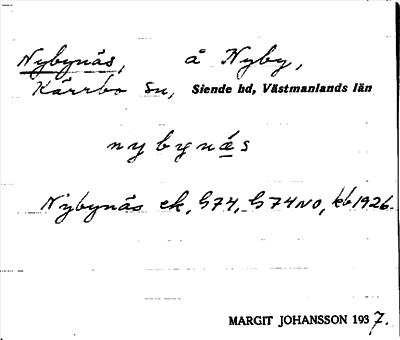 Nybynäs, å Nyby,
Kärrbo sn, Siende hd, Västmanlands län
nybynä̱s
Nybynäs ek, G74, G74NO, kb 1926.
MARGIT JOHANSSON 1937.